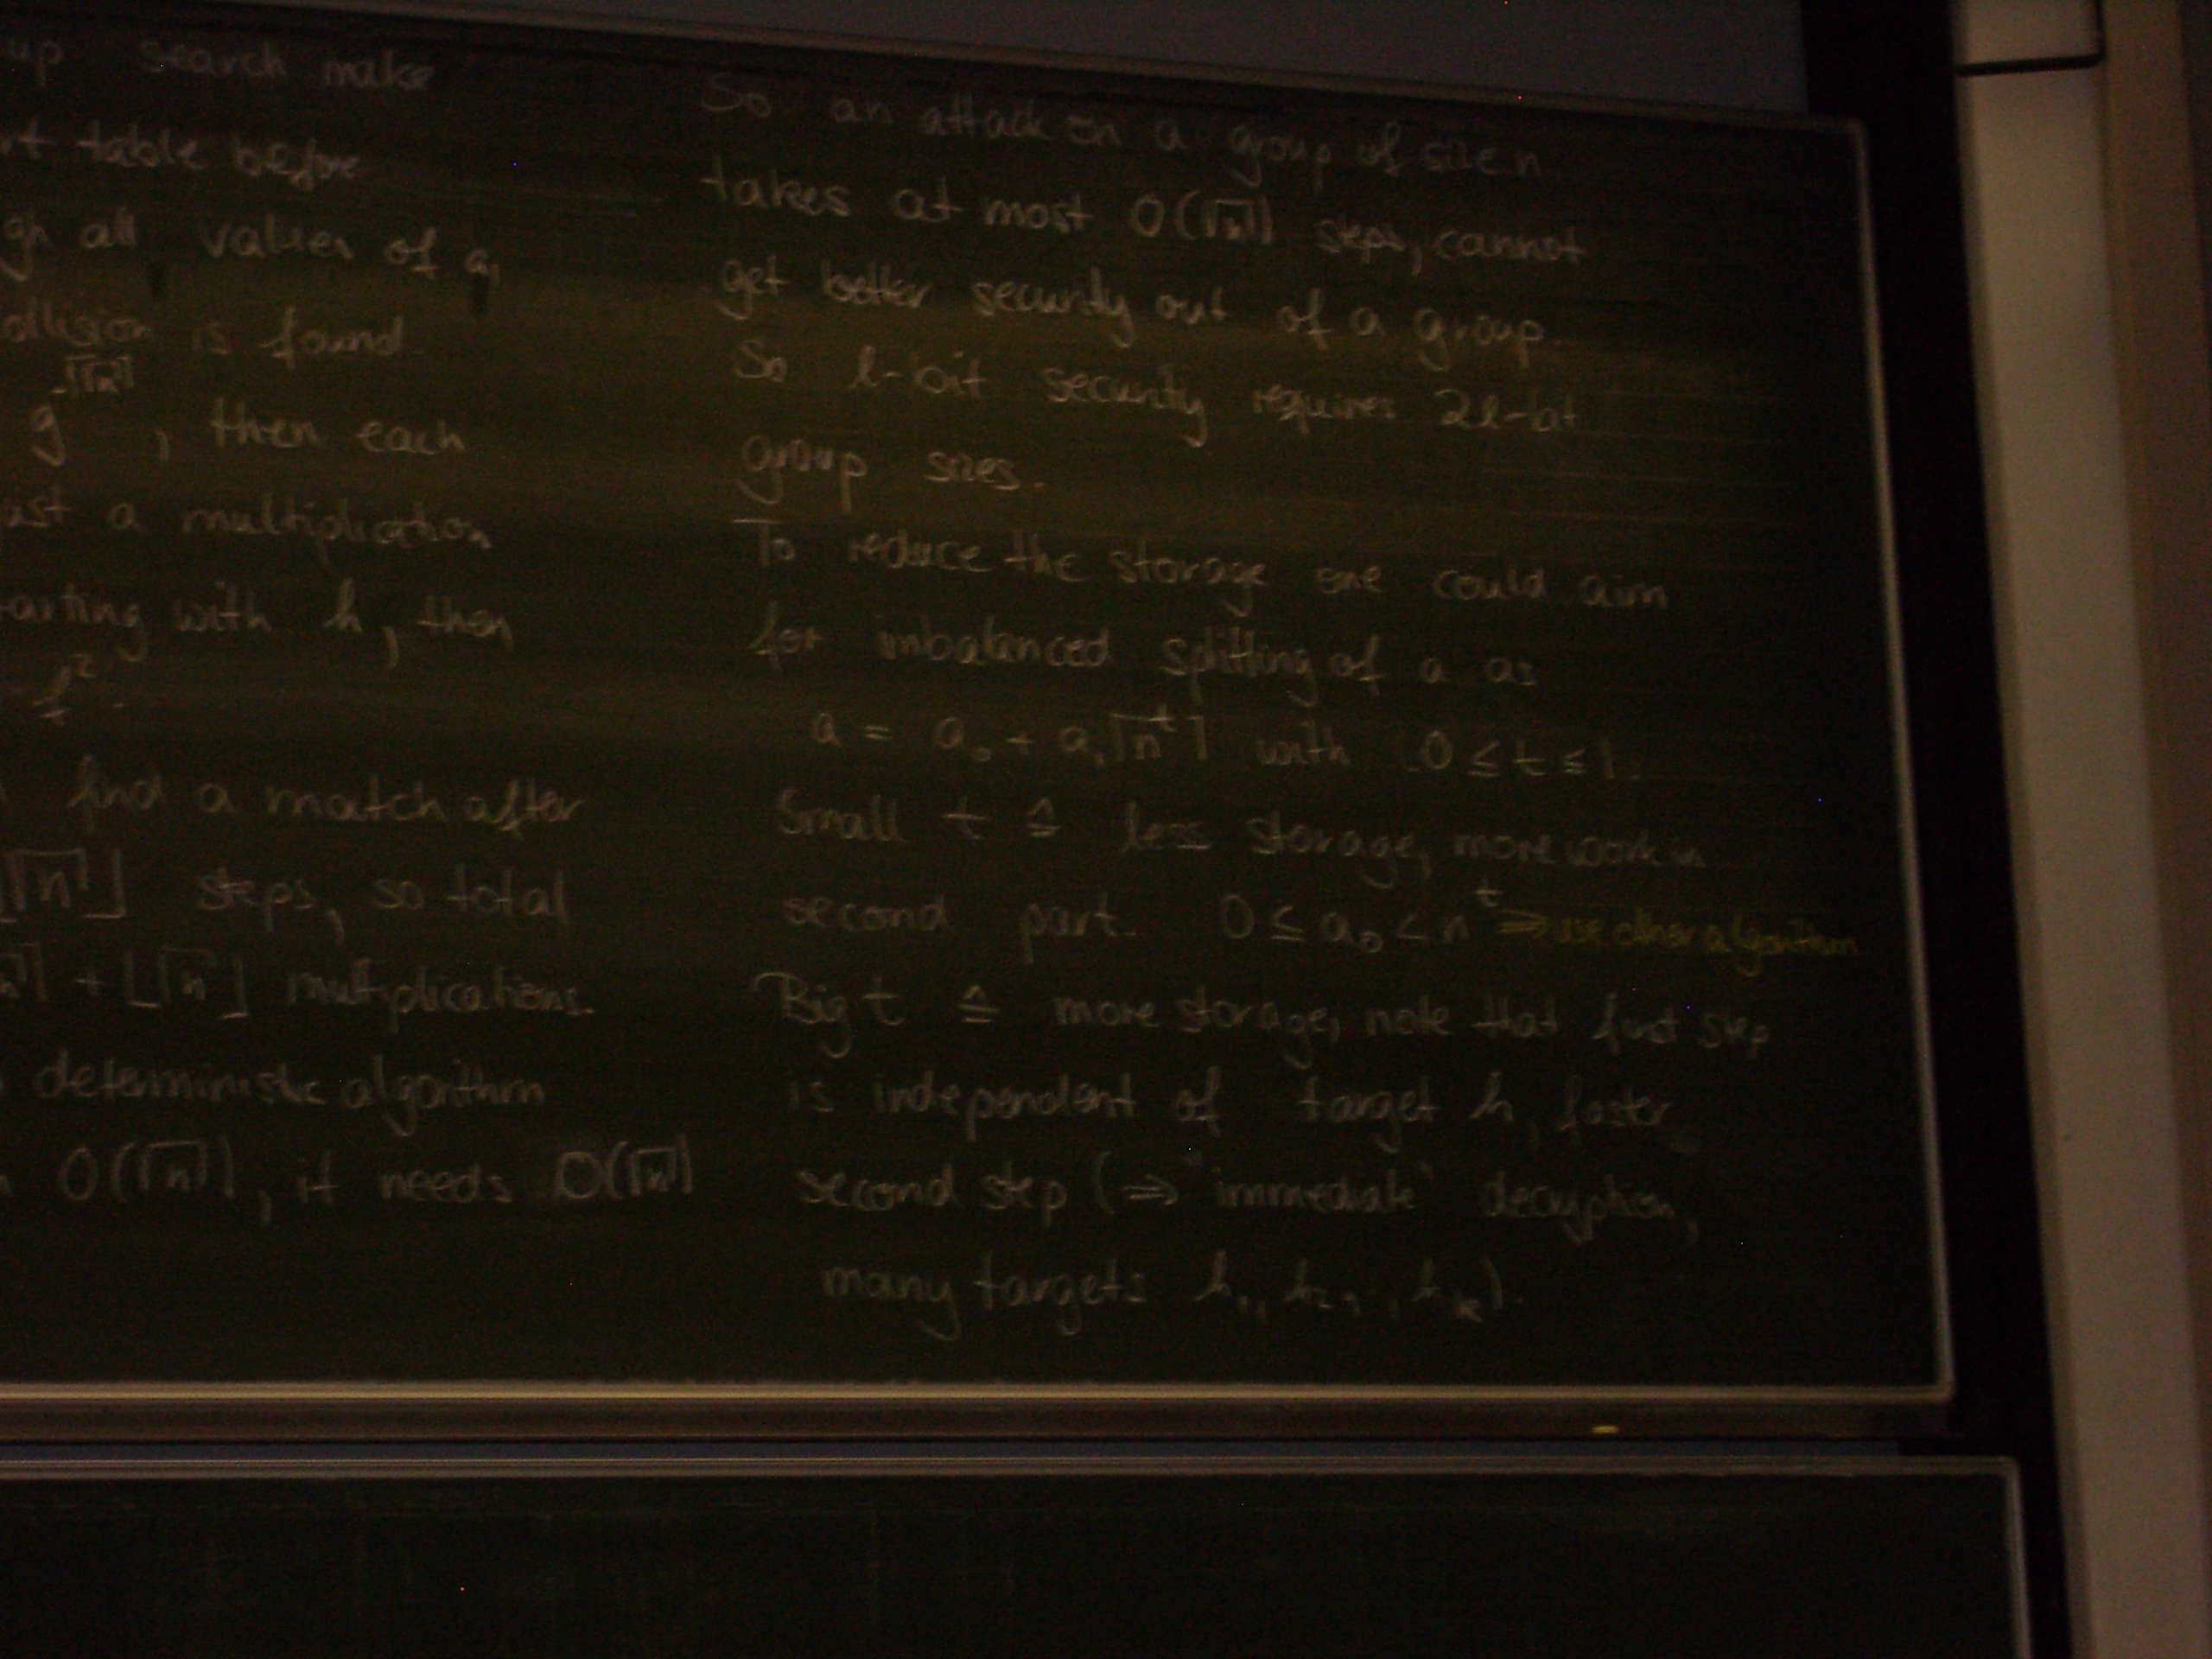 up search make
rt table before
gh all values of a₁
ollision is found.
g^-⌈√n⌉, then each
ust a multiplication
arting with h, then
f².
find a match after
⌊√n⌋ steps, so total
n⌉ + ⌊√n⌋ multiplications.
deterministic algorithm
O(√n), it needs O(√n)
So an attack on a group of size n
takes at most O(√n) steps, cannot
get better security out of a group.
So l-bit security requires 2l-bit
group sizes.
To reduce the storage one could aim
for imbalanced splitting of a as
a = a₀ + a₁⌈n^t⌉ with 0 ≤ t ≤ 1.
Small t ≙ less storage, more work in
second part. 0 ≤ a₀ < n^t ⇒ use other algorithm
Big t ≙ more storage, note that first step
is independent of target h, faster
second step (⇒ "immediate" decryption,
many targets h₁, h₂, .., hₖ).